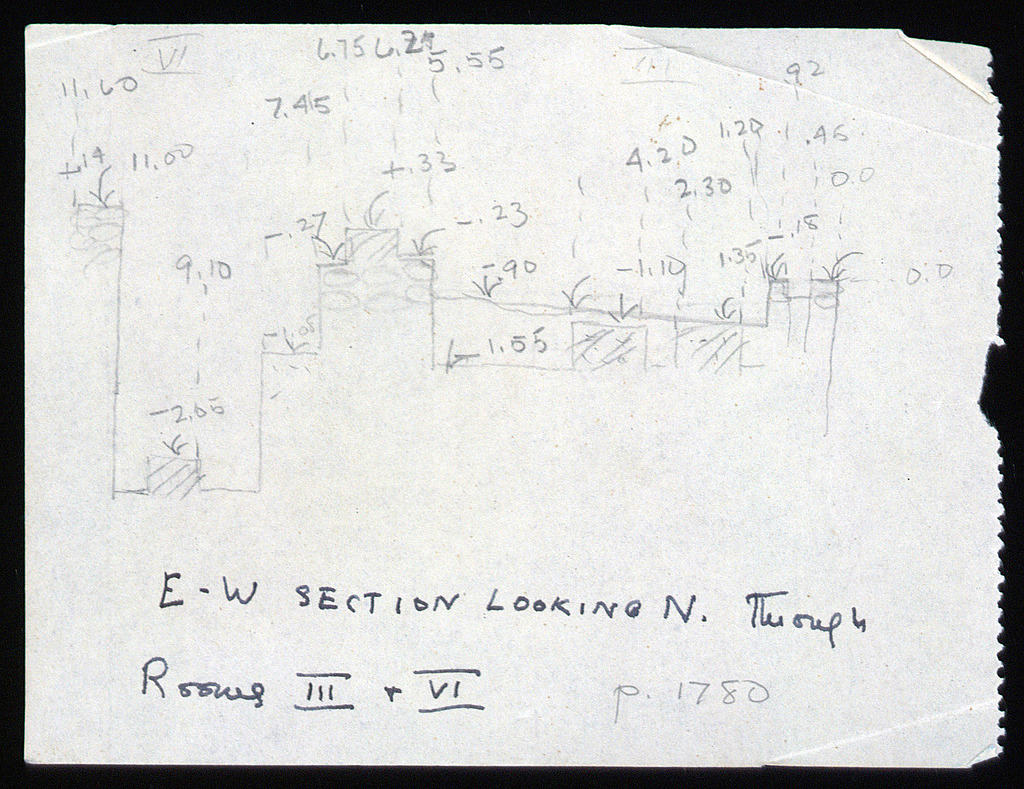 VI
6.75 6.25 5.55
III
.92
11.60
7.45
1.20
.45
+.14 11.00
+.33
4.20
2.30
0.0
-.27
-.23
-.18
9.10
-.90
-1.10
1.35
0.0
-1.05
-1.55
-2.05
E-W SECTION LOOKING N. Through
Rooms III + VI
p. 1780